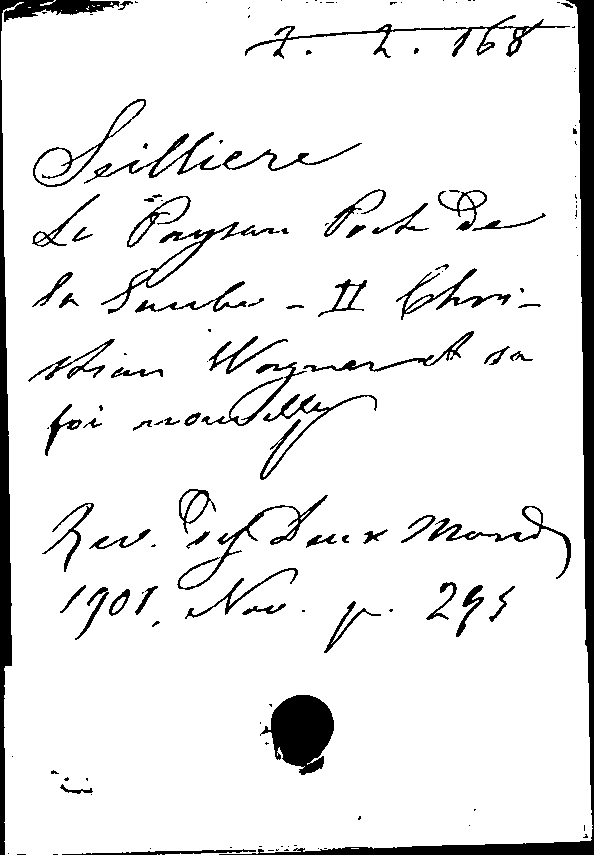 2. 2. 168
Seilliere
Le Paysan Poete de
la Suabe - II Chri-
stian Wagner et sa
foi nouvelle
Rev. des Deux Mondes
1901, Nov. p. 295